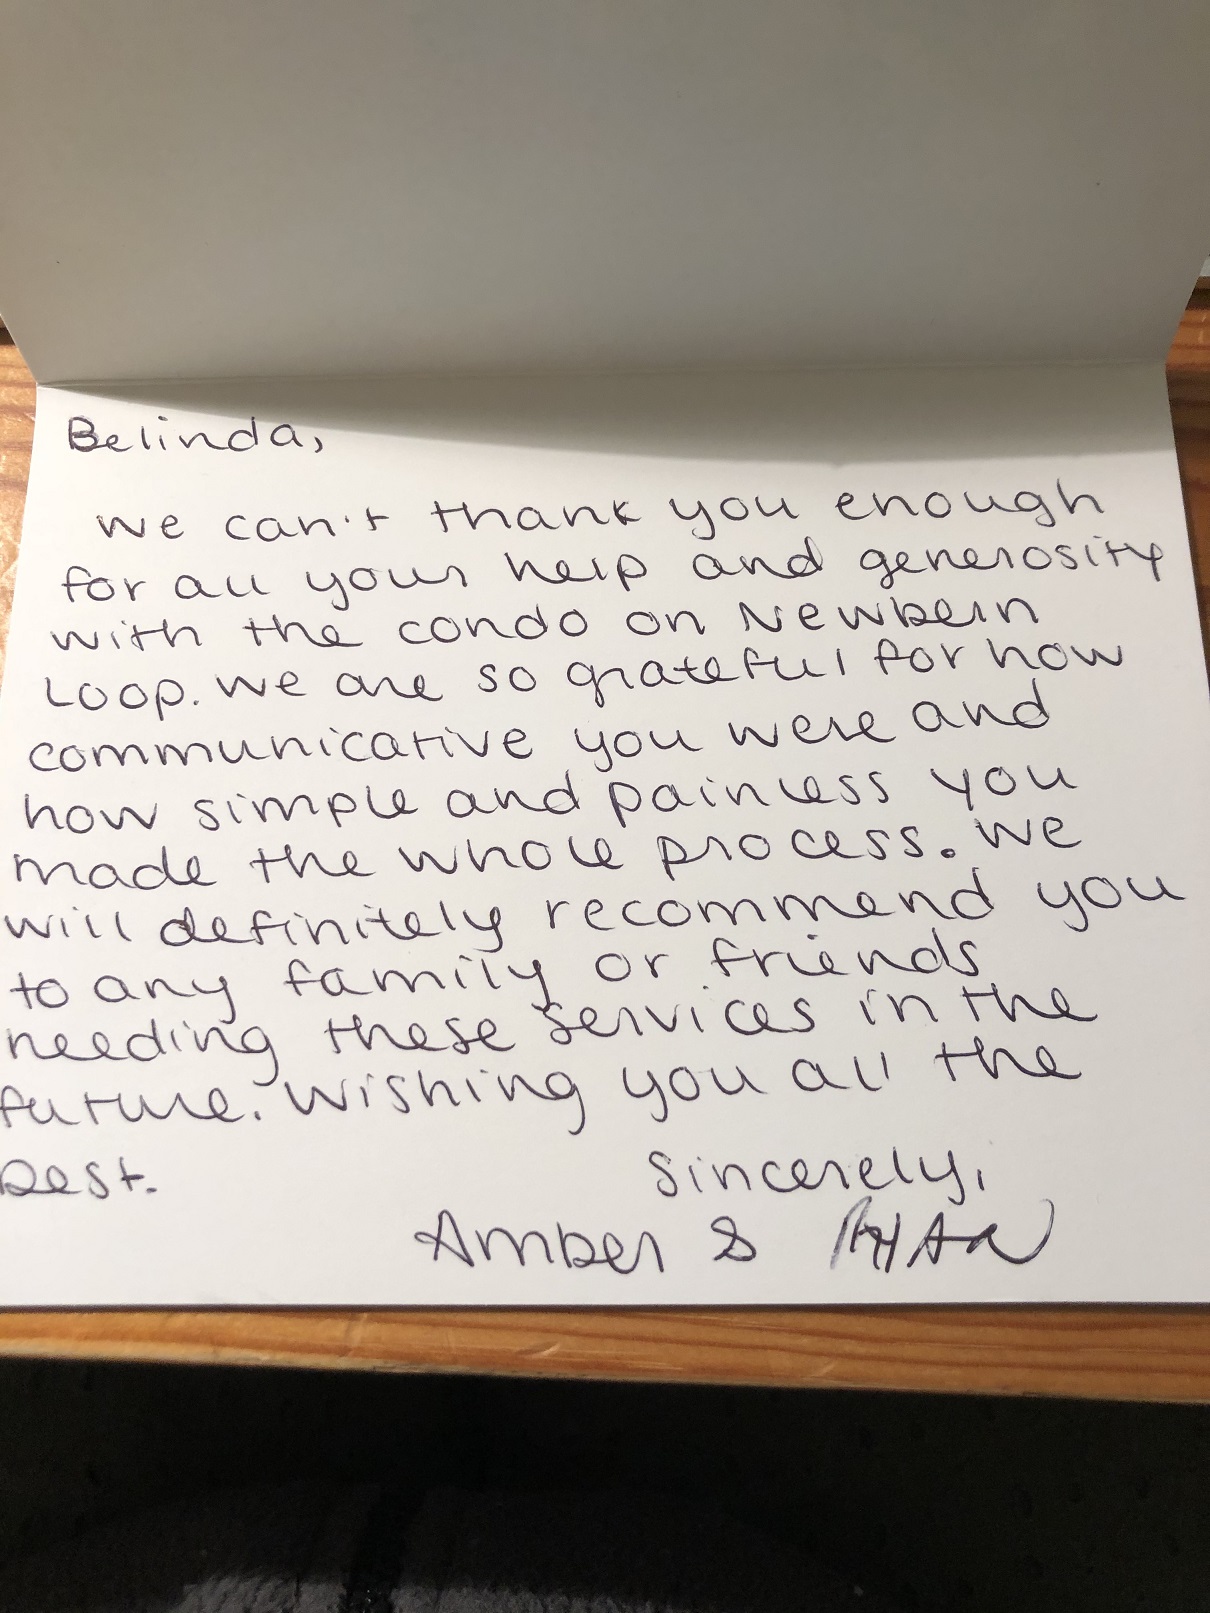 Belinda,
We can't thank you enough
for all your help and generosity
with the condo on Newbern
Loop. We are so grateful for how
communicative you were and
how simple and painless you
made the whole process. We
will definitely recommend you
to any family or friends
needing these services in the
future. Wishing you all the
best.
Sincerely,
Amber & RYAN